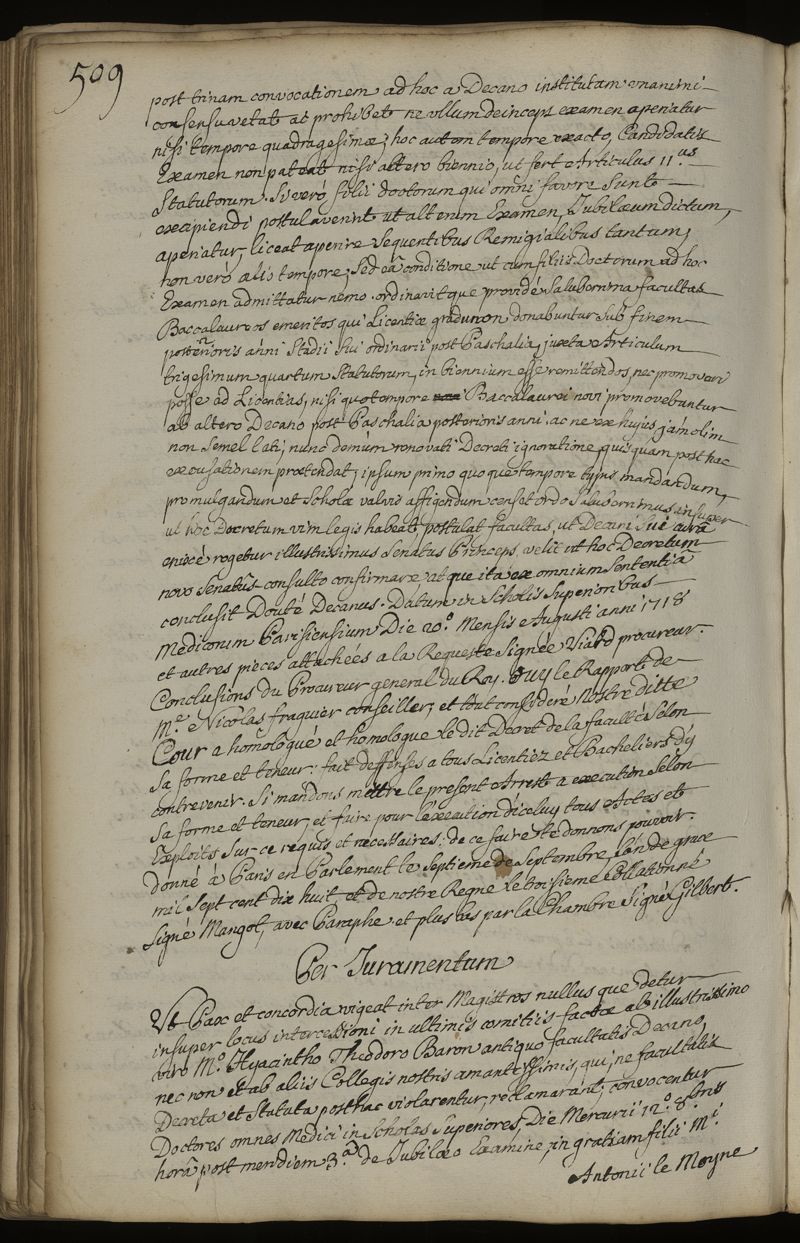 509
post trinam convocationem ad hoc a Decano institutam unanimi
consensu vetat ac prohibet ne ullum deinceps examen aperiatur
nisi tempore quadragesimæ; hoc autem tempore exacto, Candidatis
Examen non pateat nisi altero biennio, ut fert Articulus 11.us
Statutorum. Si veró filii doctorum qui omni favore sunt
excipiendi postulaverint ut alterum Examen, Jubilæum dictum,
aperiatur, liceat aperire sequentibus Remigialibus tantum,
non vero alio tempore; Sed eâ conditione ut cum filiis Doctorum ad hoc
Examen admittatur nemo. ordinavitque providé Saluberrima facultas
Baccalaureos emeritos qui Licentiæ gradu non donabuntur sub finem
posterioris anni Stadii sui ordinarii post Paschalia, juxta Articulum
trigesimum quartum Statutorum, in biennium esse remittendos, nec promoveri
posse ad Licentias, nisi quo tempore Baccalaurei novi promovebuntur
ab altero Decano post Paschalia posterioris anni. ac ne ex hujus jam olim
non semel lati, nunc demùm renovati Decreti ignoratione quisquam post hac
excusationem prætendat, ipsum primo quoque tempore typis mandandum,
promulgandum et Scholæ valvis affigendum censet ordo Saluberrimus insuper
ut hoc Decretum vim legis habeat, postulat facultas, ut Decani sui curâ
enixé rogetur illustrissimus Senatus Princeps velit ut hoc Decretum
novo Senatûs consulto confirmare atque ita ex omnium Sententiâ
conclusit Douté Decanus. Datum in Scholis Superioribus
Medicorum Parisiensium Die 20.o Mensis Augusti anni 1718
et autres pieces attachées a la Requeste Signée Viard procureur.
Conclusions du Procureur general du Roy. Ouy le Rapport de
M.e Nicolas fraguier Conseiller, et tout consideré Nostre ditte
Cour a homologué et homologue le dit Decret de la faculté Selon
Sa forme et teneur: fait deffenses a tous Licentiez et Bacheliers dy
contrevenir. Si mandons mettre le present Arrest a execution Selon
Sa forme et teneur, et faire pour l'execution diceluy tous Actes et
Exploits Sur ce requis et necessaires: de ce faire te donnons pouvoir.
donné à Paris en Parlement le Septieme de Septembre, l'an de grace
mil Sept cent dix huit, et de nostre Regne le troisieme Collationné
Signé Mangot, avec Paraphe et plus bas par la Chambre Signé Gilbert.
Per Juramentum
Ut Pax et concordia vigeat inter Magistros nullus que detur
insuper locus intercessioni in ultimis comitiis factæ ab illustrissimo
viro M.o Hyacintho Theodoro Baron antiquo facultatis Decano,
nec non et ab aliis Collegis nostris amantissimis, qui, ne facultatis
Decreta et Statuta posthac violarentur, reclamarant, convocentur
Doctores omnes Medici in Scholas Superiores, Die Mercurii 12.o 8bris
horâ post meridiem 3.a de Jubilæo Examine, in gratiam filii M.i
Antonii le Moyne